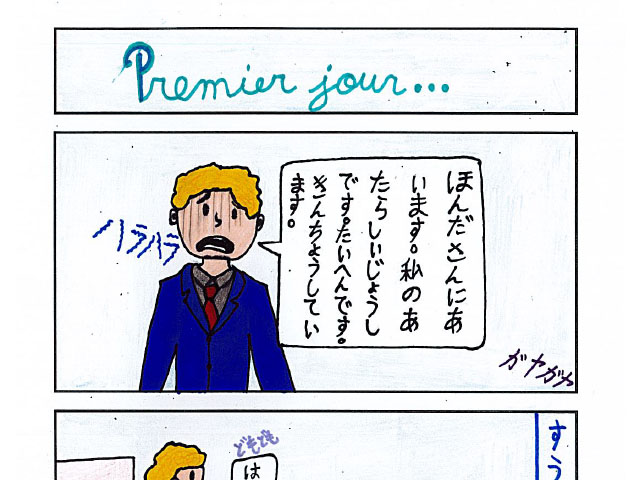 Premier jour...
ほんださんにあ
います。私のあ
たらしいじょうし
です。たいへんです。
きんちょうしてい
ます。
ハラハラ
ガヤガヤ
すう
どもども
は